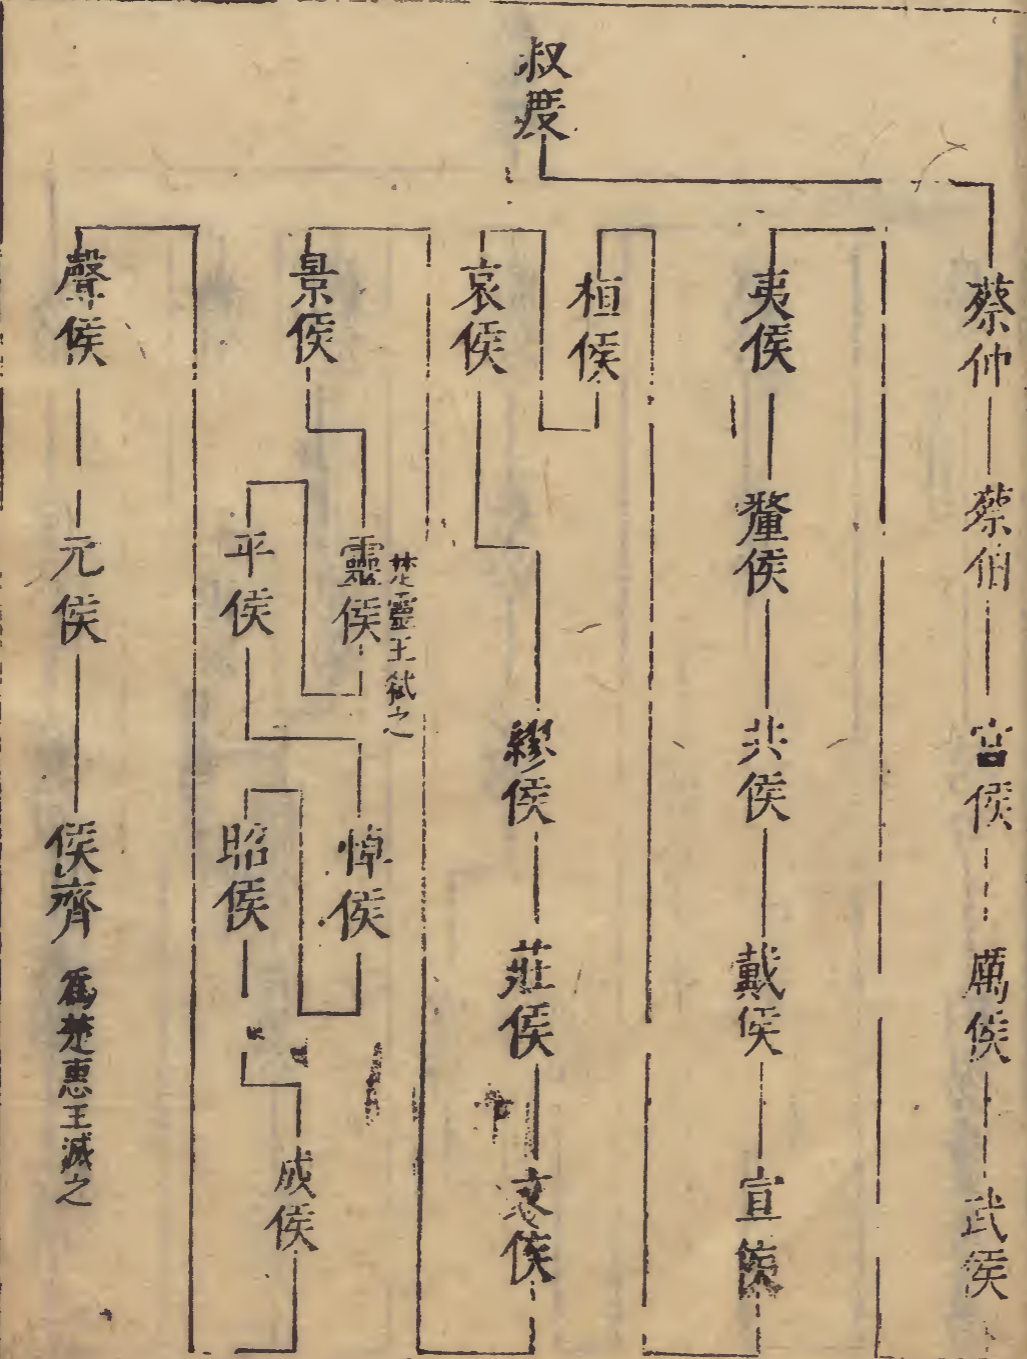 叔度
蔡仲
蔡伯
宮侯
厲侯
武侯
夷侯
釐侯
共侯
戴侯
宣侯
桓侯
哀侯
繆侯
莊侯
文侯
景侯
靈侯
楚靈王弒之
平侯
悼侯
昭侯
成侯
聲侯
元侯
侯齊
為楚惠王滅之